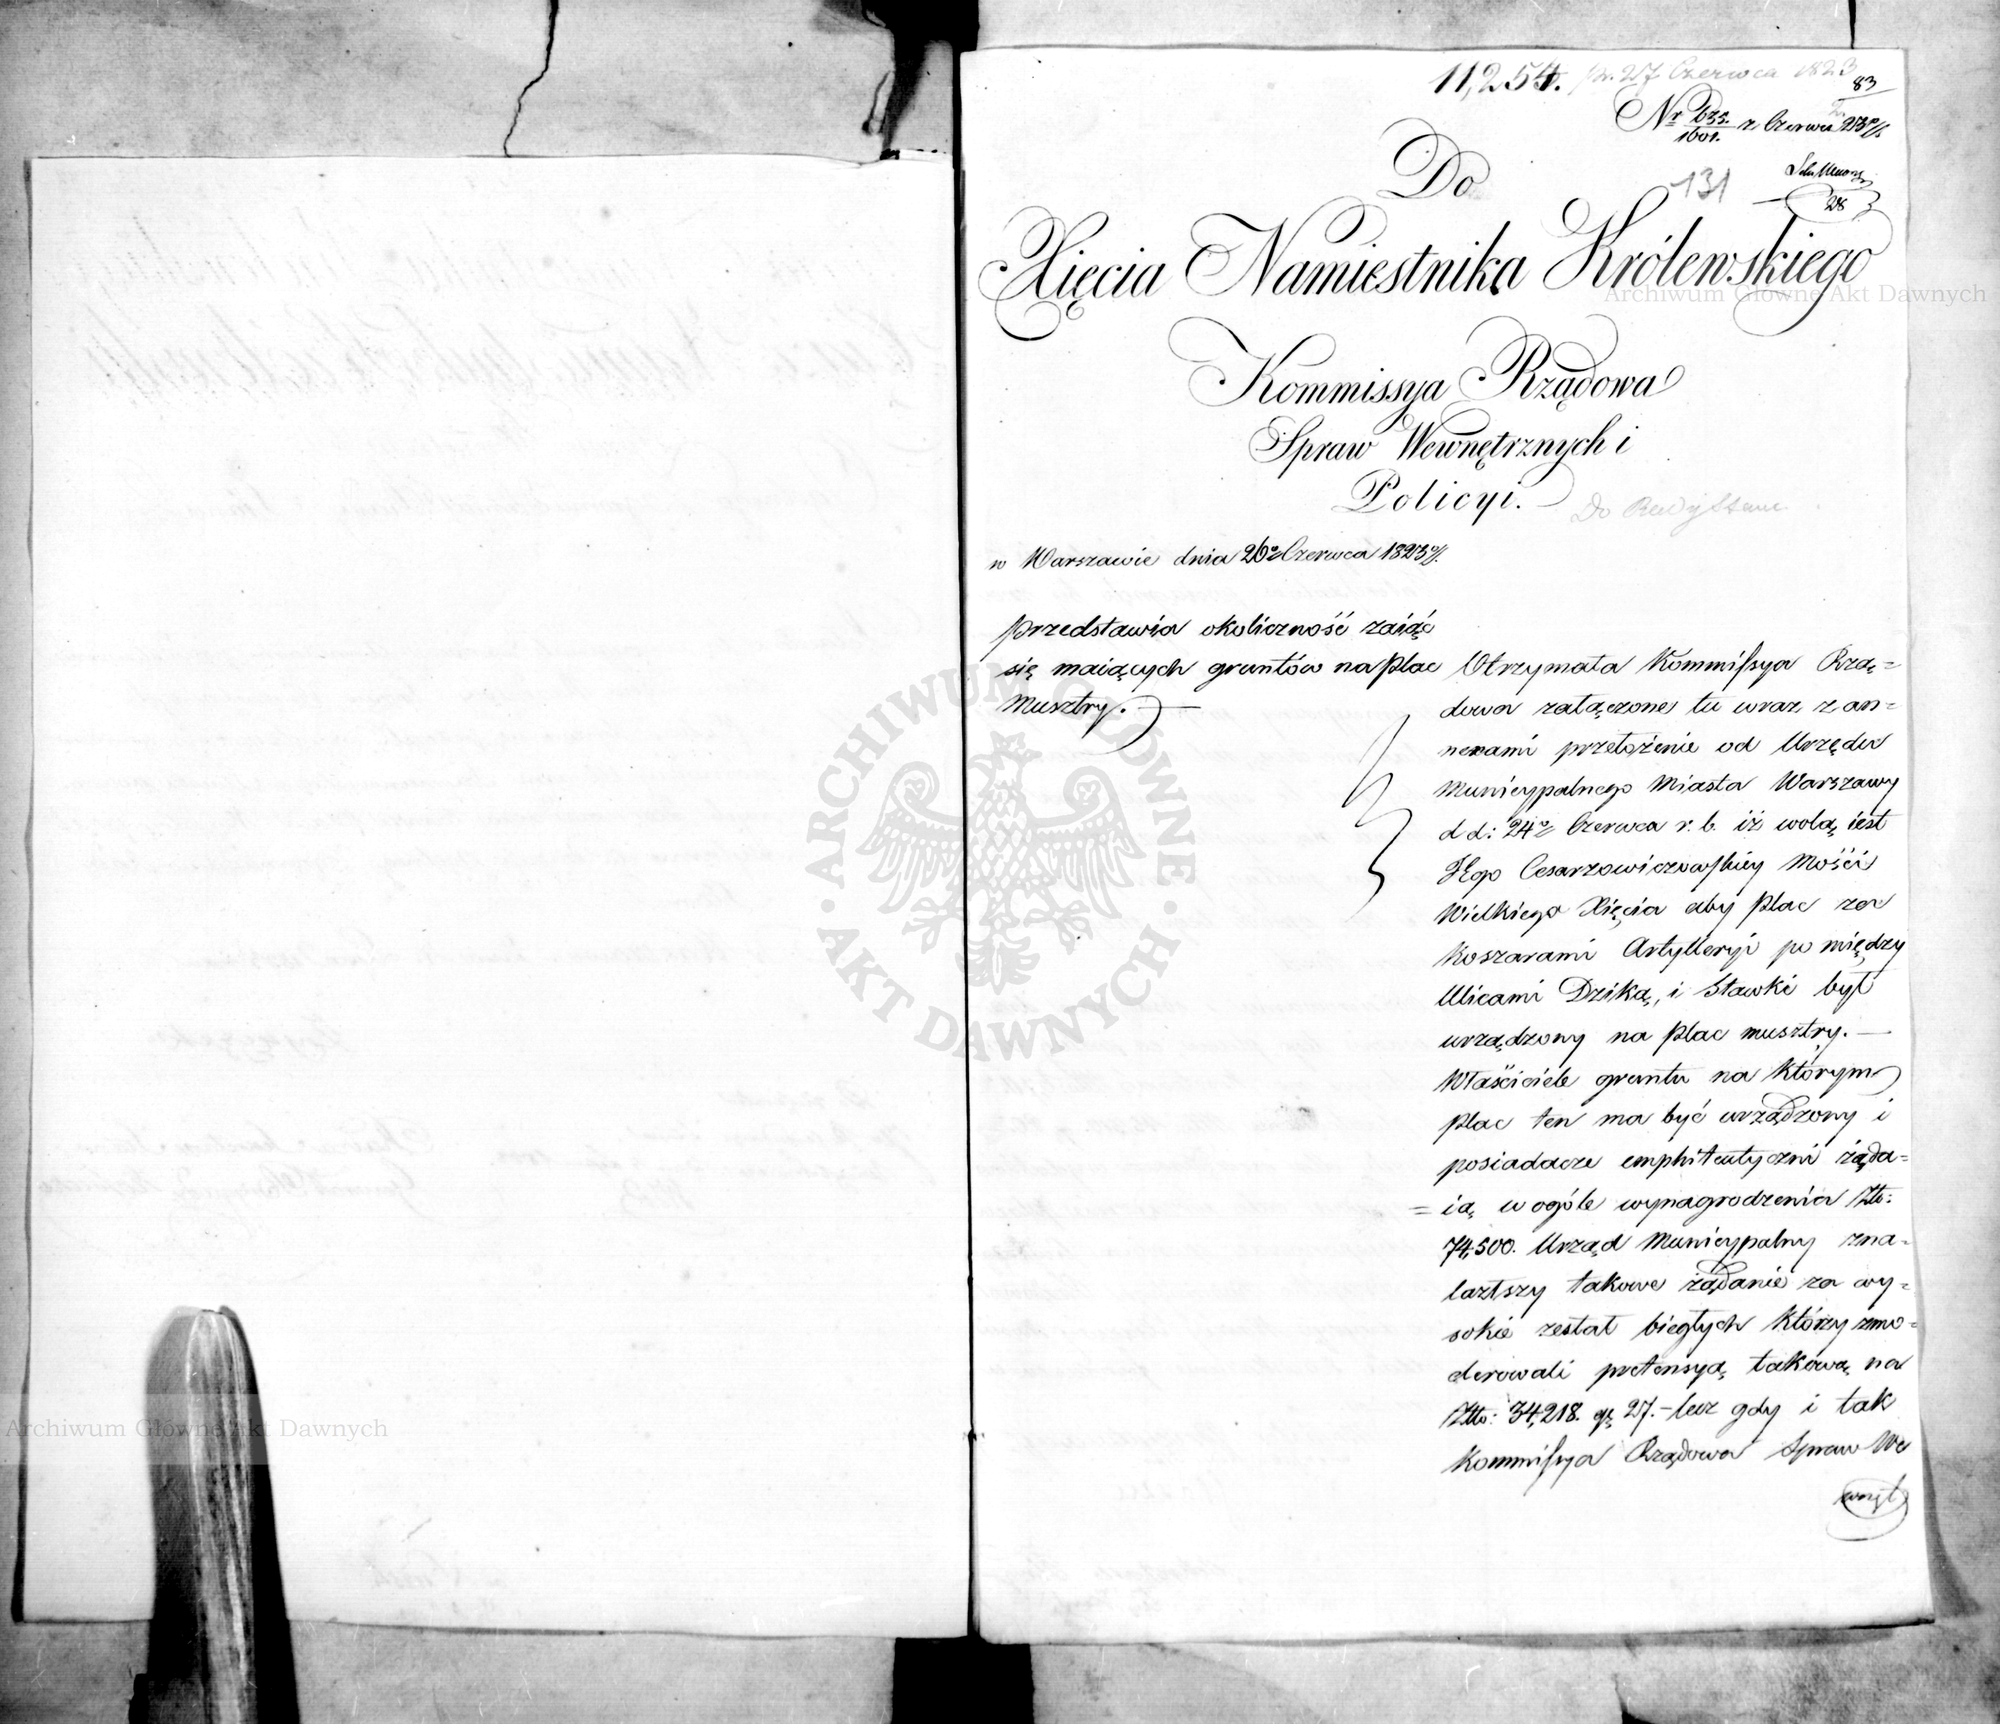 11,254. pr. 27 Czerwca 1823
83
Nr 635./1601. z Czerwca 1823 r.
131
28
Do
Xięcia Namiestnika Królewskiego
Kommissya Rządowa
Spraw Wewnętrznych i
Policyi.
Do
w Warszawie dnia 26go Czerwca 1823 r.
przedstawia okoliczność zaiąć
się maiących gruntów na Plac
Musztry.
Otrzymała Kommissya Rzą=
dowa załączone tu wraz z an=
nexami przełożenie od Urzędu
Municypalnego Miasta Warszawy
d d: 24go Czerwca r. b. iż wolą iest
JEgo Cesarzowiczowskiey Mości
Wielkiego Xięcia aby Plac za
Koszarami Artylleryi po między
Ulicami Dziką, i Stawki był
urządzony na Plac musztry. —
Właściciele gruntu na którym
Plac ten ma być urządzony i
posiadacze emphiteutyczni żąda=
= ią, w ogóle wynagrodzenia Złt:
74,500. Urząd Municypalny zna=
lazłszy takowe żądanie za wy=
sokie zesłał biegłych którzy zmo=
derowali pretensyą takową na
Złt: 34,218. gr 27. – lecz gdy i tak
Kommissya Rządowa Spraw We
wnęt
ARCHIWUM GŁÓWNE AKT DAWNYCH
Archiwum Główne Akt Dawnych
Archiwum Główne Akt Dawnych